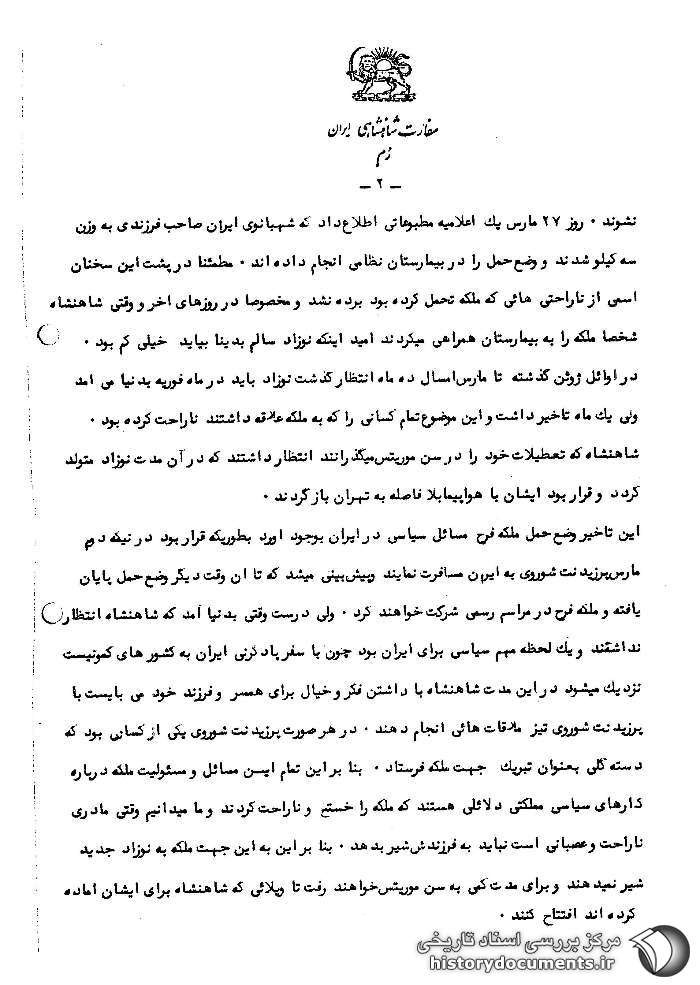 سفارت شاهنشاهی ایران
رم
- ۲ -
نشوند ۰ روز ۲۷ مارس یك اعلامیه مطبوعاتی اطلاع داد که شهبانوی ایران صاحب فرزندی به وزن
سه کیلو شدند و وضع حمل را در بیمارستان نظامی انجام داده اند ۰ مطمئنا در پشت این سخنان
اسمی از ناراحتی هائی که ملکه تحمل کرده بود برده نشد و مخصوصا در روزهای اخر و وقتی شاهنشاه
شخصا ملکه را به بیمارستان همراهی میکردند امید اینکه نوزاد سالم بدینا بیاید خیلی کم بود ۰
در اوائل ژوئن گذشته تا مارس امسال ده ماه انتظار گذشت نوزاد باید در ماه فوریه بدنیا می امد
ولی یك ماه تاخیر داشت و این موضوع تمام کسانی را که به ملکه علاقه داشتند ناراحت کرده بود ۰
شاهنشاه که تعطیلات خود را در سن موریتس میگذرانند انتظار داشتند که در آن مدت نوزاد متولد
گردد و قرار بود ایشان با هواپیما بلا فاصله به تهران باز گردند ۰
این تاخیر وضع حمل ملکه فرح مسائل سیاسی در ایران بوجود اورد بطوریکه قرار بود در نیمه دوم
مارس پرزیدنت شوروی به ایران مسافرت نمایند و پیش بینی میشد که تا ان وقت دیگر وضع حمل پایان
یافته و ملکه فرح در مراسم رسمی شرکت خواهند کرد ۰ ولی درست وقتی بدنیا آمد که شاهنشاه انتظار
نداشتند و یك لحظه مهم سیاسی برای ایران بود چون با سفر پادگرنی ایران به کشور های کمونیست
نزدیك میشود در این مدت شاهنشاه با داشتن فکر و خیال برای همسر و فرزند خود می بایست با
پرزیدنت شوروی نیز ملاقات هائی انجام دهند ۰ در هر صورت پرزیدنت شوروی یکی از کسانی بود که
دسته گلی بعنوان تبریك جهت ملکه فرستاد ۰ بنا بر این تمام ایسن مسائل و مسئولیت ملکه درباره
کارهای سیاسی مملکتی دلائلی هستند که ملکه را خسته و ناراحت کردند و ما میدانیم وقتی مادری
ناراحت و عصبانی است نباید به فرزندش شیر بدهد ۰ بنا بر این به این جهت ملکه به نوزاد جدید
شیر نمیدهند و برای مدت کمی به سن موریتس خواهند رفت تا ویلائی که شاهنشاه برای ایشان اماده
کرده اند افتتاح کنند ۰
مرکز بررسی اسناد تاریخی
historydocuments.ir